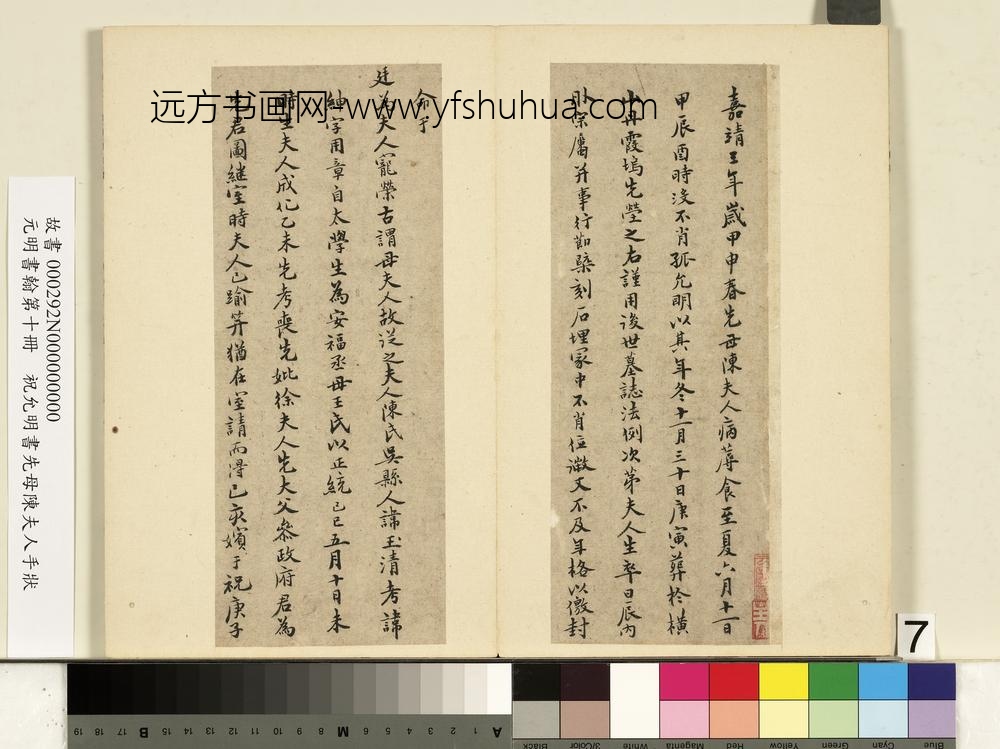 嘉靖三年歲甲申春先母陳夫人病蓐食至夏六月十一日
甲辰酉時沒不肖孤允明以其年冬十一月三十日庚寅葬於橫
山丹霞塢先塋之右謹用後世墓誌法例次第夫人生卒日辰內
外宗屬并事行勤槩刻石埋冢中不肖位微文不及年格以儌封
命于
廷為夫人寵榮古謂母夫人故從之夫人陳氏吳縣人諱玉清考諱
紳字用章自太學生為安福丞母王氏以正統己巳五月十日未
時生夫人成化乙未先考喪先妣徐夫人先大父參政府君為
先君圖繼室時夫人已踰笄猶在室請而得之亥嬪于祝庚子
远方书画网-www.yfshuhua.com
故書000292N000000000
元明書翰第十冊 祝允明書先母陳夫人手狀
7
19 18 17 16 15 B 14 13 12 11 10 9 8 M 7 6 5 4 3 2 1 A
Black 3/Color White Magenta Red Yellow Green Cyan Blue